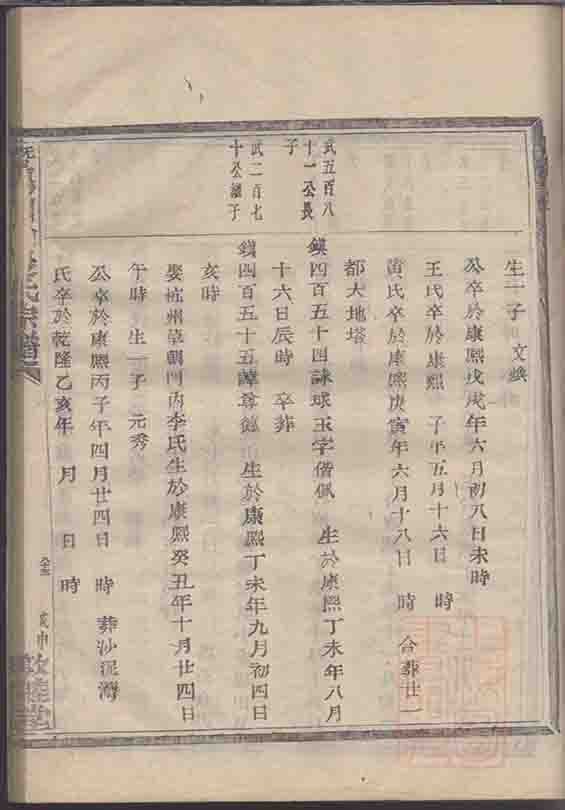 生一子 文煥
公卒於康熙戊戌年六月初八日未時
王氏卒於康熙 子年五月十六日 時
黄氏卒於康熙庚寅年六月十八日 時 合葬廿一
都大地塔
武五百八
十一公長
子
鎮四百五十四諱球玉字偕佩 生於康熙丁未年八月
十六日辰時 卒葬
武二百七
十公繼子
鎮四百五十五諱尊德 生於康熙丁未年九月初四日
亥時
娶杭州草朝門内李氏生於康熙癸丑年十月廿四日
午時 生一子 元秀
公卒於康熙丙子年四月廿四日 時 葬沙泥灣
氏卒於乾隆乙亥年 月 日 時
氏宗譜
戊申
敦睦堂